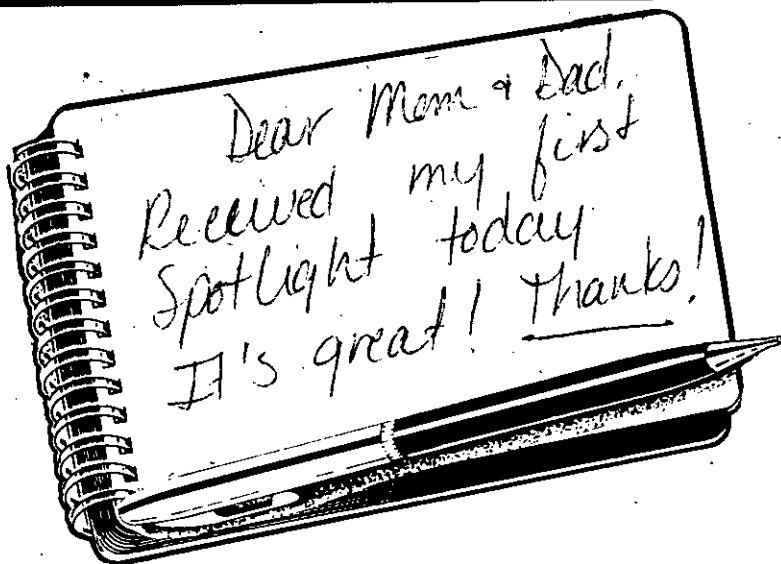 Dear Mom & Dad,
Received my first
Spotlight today
It's great! Thanks!